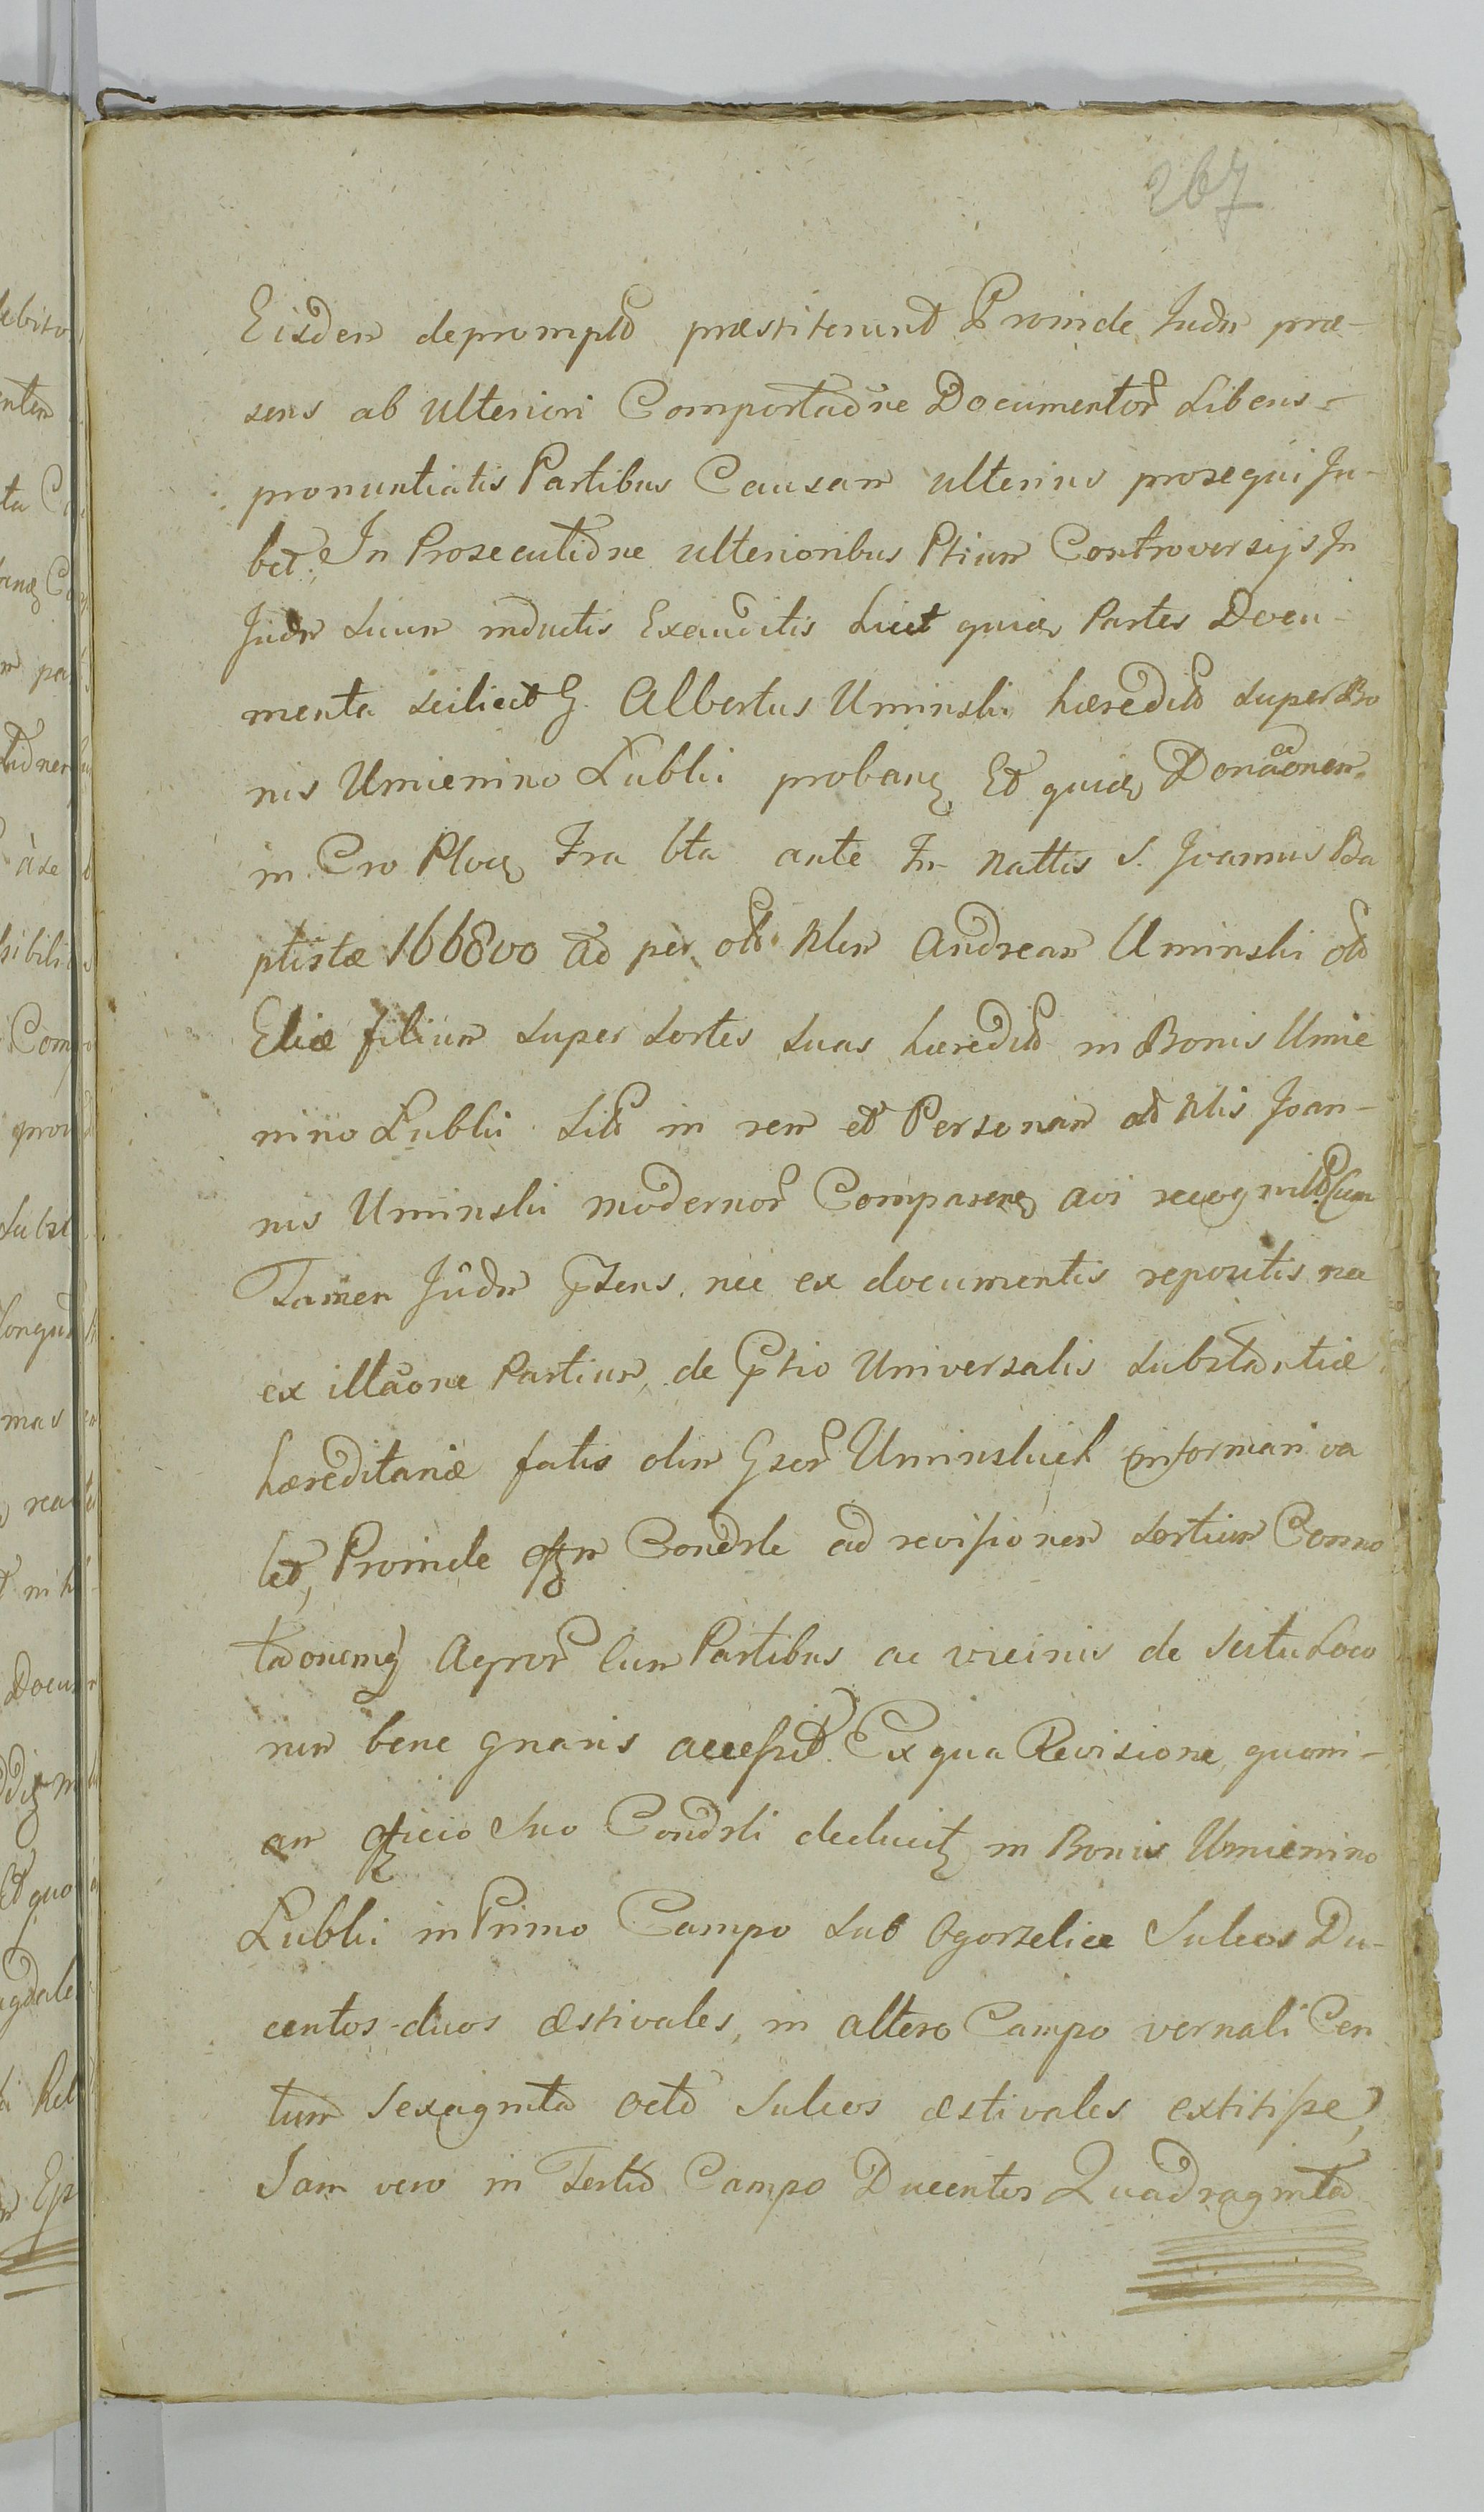 267
Eisdem deprompto præstiterunt Proinde Judm præ-
sens ab ulteriori Comportaône Documentor Liberis
pronuntiatis Partibus Causam ulterius prosequi Ju-
bet. In Prosecutiône ulterioribus Ptium Controversijs In
Judm suum inductis Exauditis Licet quidem Partes Docu-
menta scilicet G. Albertus Uminski hæredit super Bo
nis Umienino Łubki proban Et quidem Donaônem
in Cro Ploc Fra 6ta ante F. Nattis S. Joannis Ba
ptistæ 1668vo ad per olim Nlem Andream Uminski olim
Eliæ filium super sortes suas hæredit in Bonis Umie
nino Łubki Sit in rem et Personam olim Nlis Joan-
nis Uminski modernor Comparen avi recognit. Cum
Tamen Judm Psens, nec ex documentis repositis nec
ex illaône Partium, de Ptio Universalis substantiæ
hæreditariæ fatis olim Gser Uminskich informari va
let, Proinde offm Condsle ad revisionem sortium Conno
taonemq Agror Cum Partibus ac vicinis de scitu Loco
rum bene gnaris accessit. Ex qua Revisione quoni-
am officio suo Condsli deducit in Bonis Umienino
Łubki in Primo Campo sub Ogorzelice Sulcos Du-
centos-duos æstivales, in altero Campo vernali Cen
tum sexaginta octo sulcos æstivales extitisse,
Jam vero in Tertio Campo Ducentos Quadraginta